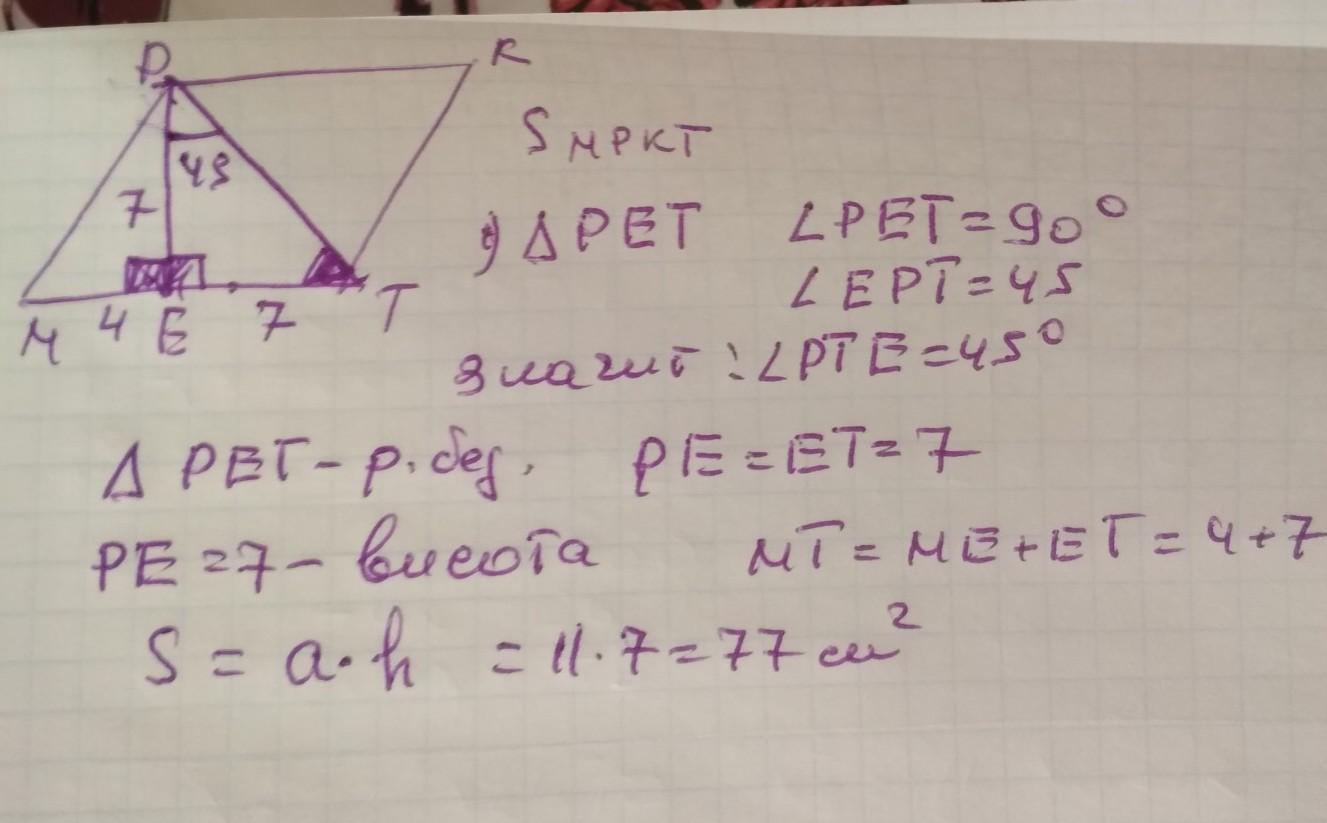 P K
45
7
M 4 E 7 T
S МРКТ
1) Δ PET ∠PET = 90°
∠EPT = 45
значит : ∠PTE = 45°
Δ PET - р. бед. PE = ET = 7
PE = 7 - висота MT = ME + ET = 4 + 7
S = a · h = 11 · 7 = 77 см²